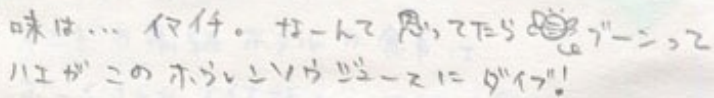 味は… イマイチ。なーんて 思ってたら ブーンって
ハエが この ホウレンソウ ジュースに ダイブ!